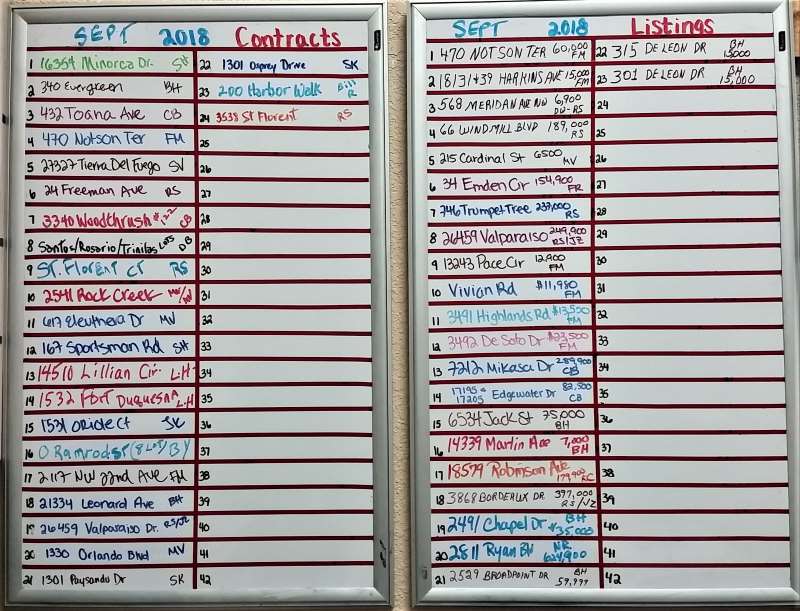 SEPT 2018 Contracts
1 16354 Minorca Dr. SH
2 340 Evergreen BH
3 432 Toana Ave CB
4 470 Notson Ter FM
5 27327 Tierra Del Fuego SV
6 24 Freeman Ave RS
7 3340 Woodthrush #122 CB
8 Santos/Rosario/Trinitas Lots DB
9 ST. Florent CT RS
10 2541 Rock Creek
11 617 Eleuthera Dr MV
12 167 Sportsman Rd SH
13 14510 Lillian Cir. L.H
14 1532 Fort Duquesna L.H
15 1531 oriole ct SK
16 0 Ramrod ST (8 LOT) BY
17 2117 NW 22nd Ave FM
18 21334 Leonard Ave BH
19 26459 Valparaiso Dr. RS/JZ
20 1330 Orlando Blvd MV
21 1301 Paysandu Dr SK
22 1301 Osprey Drive SK
23 200 Harbor Walk Bill R
24 3538 ST Florent RS
25
26
27
28
29
30
31
32
33
34
35
36
37
38
39
40
41
42
SEPT 2018 Listings
1 470 NOTSON TER 60,000 FM
2 18131+39 HARKINS AVE 15,000 FM
3 568 MERIDAN AVE NW 6,900 DW-RS
4 66 WINDMILL BLVD 189,000 RS
5 215 Cardinal St 6500 MV
6 34 Emden Cir 154,900 FR
7 746 Trumpet Tree 237,000 RS
8 26459 Valparaiso 249,900 RS/JZ
9 13243 Pace Cir 12,900 FM
10 Vivian Rd $11,980 FM
11 3491 Highlands Rd $13,500 FM
12 3492 De Soto Dr $23,500 FM
13 7212 Mikasa Dr 289,900 CB
14 17195 & 17205 Edgewater Dr 82,500 CB
15 6534 Jack St 75,000 BH
16 14339 Martin Ave 7,000 BH
17 18579 Robinson Ave 179,900 RC
18 3868 BORDEAUX DR 397,000 RS/JZ
19 2491 Chapel Dr BH $35,000
20 2811 Ryan Blvd NR 624,900
21 2529 BROADPOINT DR BH 59,999
22 315 DE LEON DR BH 15000
23 301 DE LEON DR BH 15,000
24
25
26
27
28
29
30
31
32
33
34
35
36
37
38
39
40
41
42